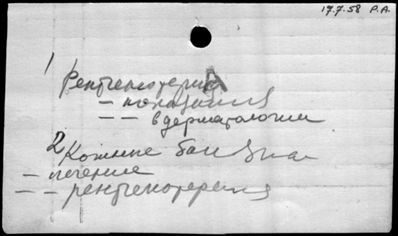 17.7.58 P.A.
1 Рентгенотерапия
– показания
– – в дерматологии
2 Кожные болезни
– лечение
– – рентгенотерапия